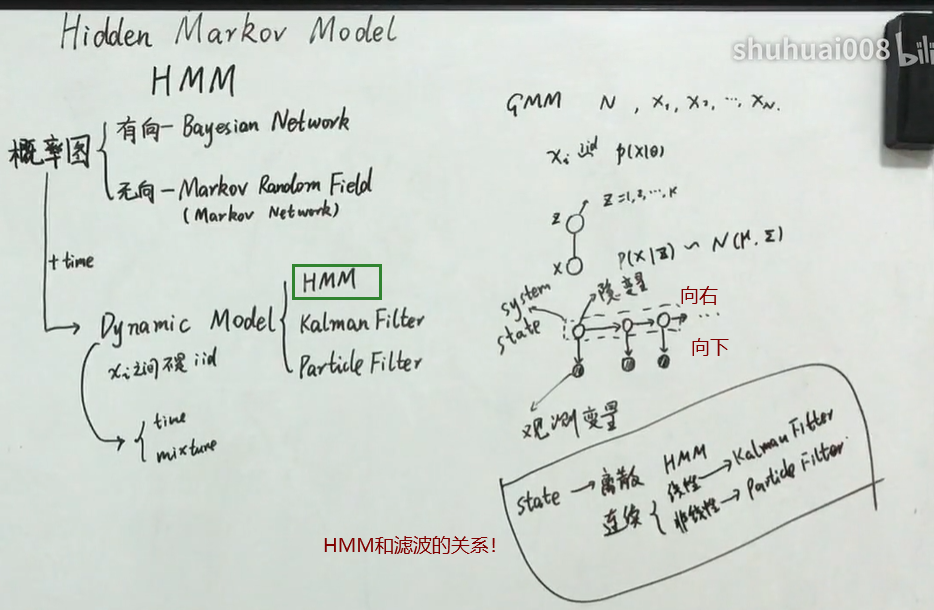 Hidden Markov Model
HMM
shuhuai008 bili
概率图
有向-Bayesian Network
无向-Markov Random Field
(Markov Network)
+time
Dynamic Model
HMM
Kalman Filter
Particle Filter
xᵢ之间不是iid
time
mixture
GMM N, x₁, x₂, …, x_N.
xᵢ iid p(x|θ)
z z=1,2,…,K
x p(x|z) ~ N(μ,Σ)
system
state
隐变量
向右
向下
观测变量
state → 离散 HMM
连续 线性 → Kalman Filter
非线性 → Particle Filter
HMM和滤波的关系!